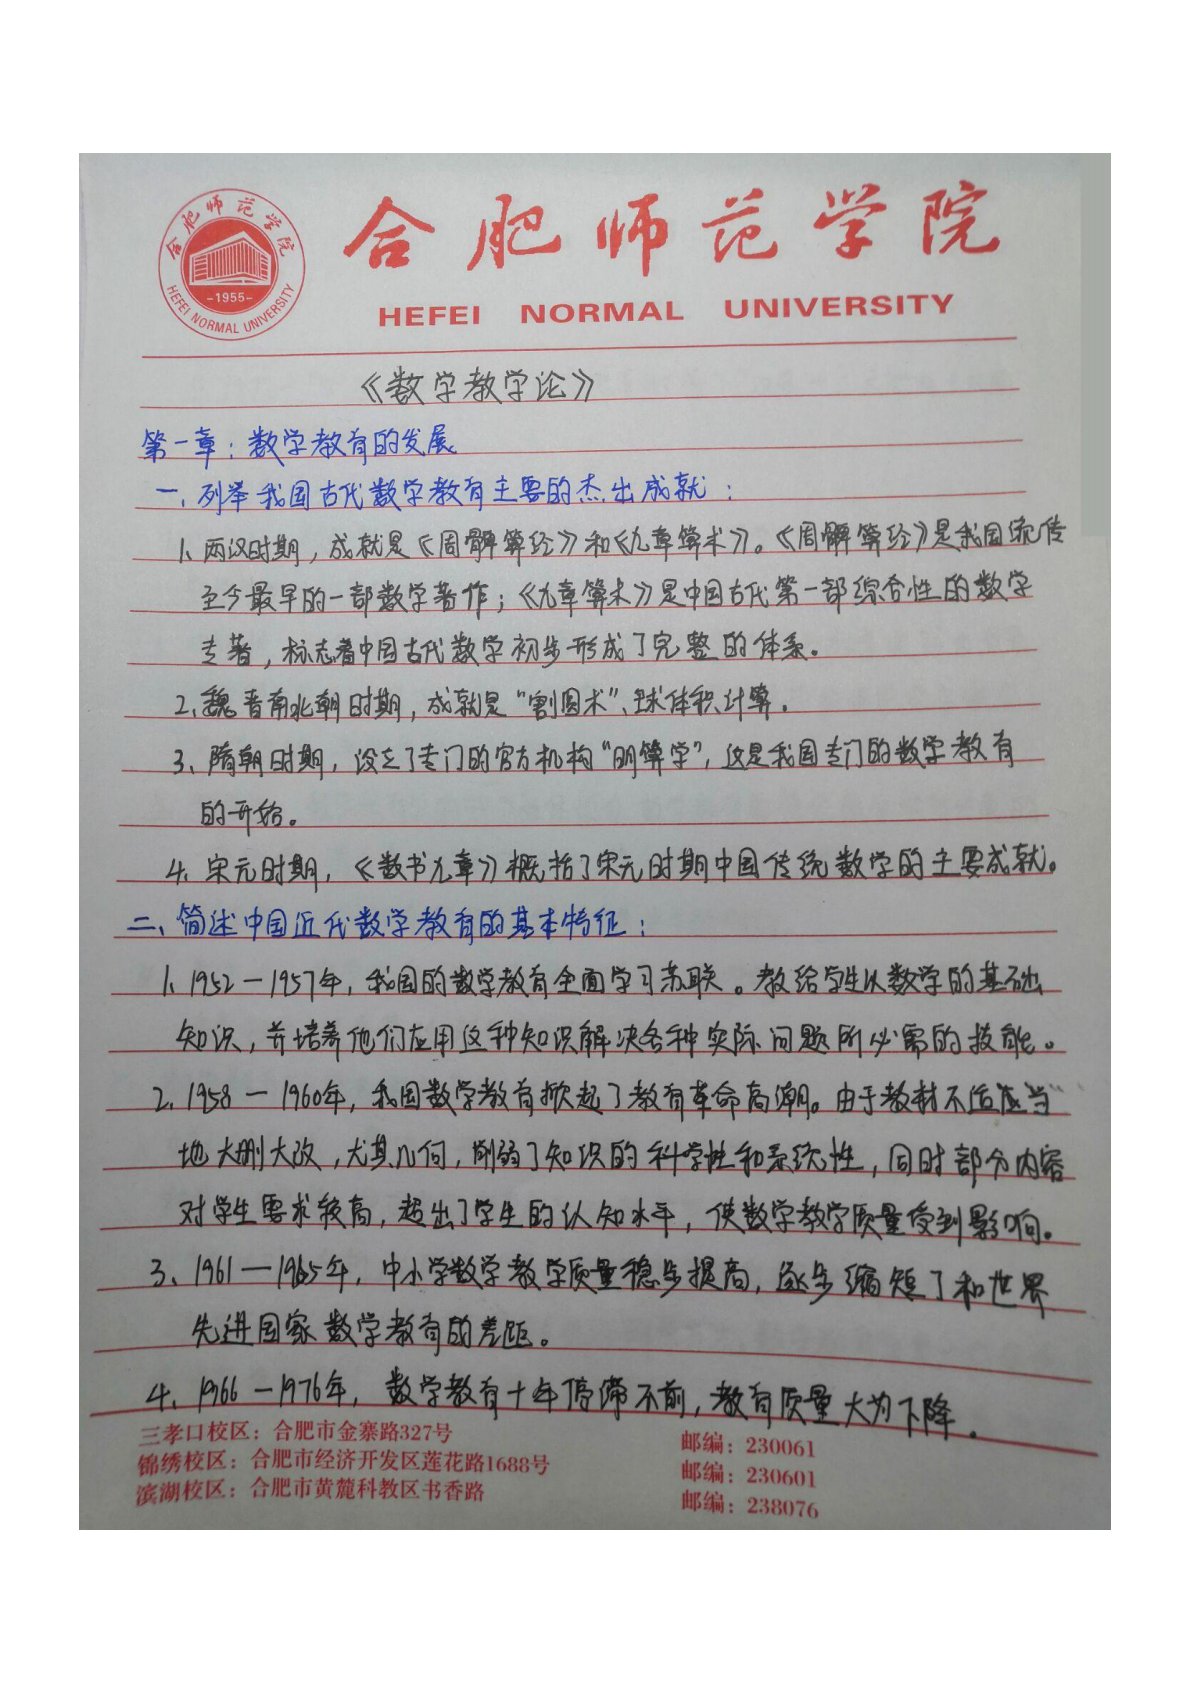 合肥师范学院
HEFEI NORMAL UNIVERSITY
合肥师范学院
-1955-
HEFEI NORMAL UNIVERSITY
《数学教学论》
第一章：数学教育的发展
一、列举我国古代数学教育主要的杰出成就：
1、两汉时期，成就是《周髀算经》和《九章算术》。《周髀算经》是我国流传
至今最早的一部数学著作；《九章算术》是中国古代第一部综合性的数学
专著，标志着中国古代数学初步形成了完整的体系。
2、魏晋南北朝时期，成就是“割圆术”、球体积计算．
3、隋朝时期，设立了专门的官方机构“明算学”，这是我国专门的数学教育
的开始。
4、宋元时期，《数书九章》概括了宋元时期中国传统数学的主要成就。
二、简述中国近代数学教育的基本特征：
1、1952—1957年，我国的数学教育全面学习苏联。教给学生以数学的基础
知识，并培养他们应用这种知识解决各种实际问题所必需的技能。
2、1958—1960年，我国数学教育掀起了教育革命高潮。由于教材不适应当
地大删大改，尤其几何，削弱了知识的科学性和系统性，同时部分内容
对学生要求较高，超出了学生的认知水平，使数学教学质量受到影响。
3、1961—1965年，中小学数学教学质量稳步提高，逐步缩短了和世界
先进国家数学教育的差距。
4、1966—1976年，数学教育十年停滞不前，教育质量大为下降．
三孝口校区：合肥市金寨路327号 邮编：230061
锦绣校区：合肥市经济开发区莲花路1688号 邮编：230601
滨湖校区：合肥市黄麓科教区书香路 邮编：238076